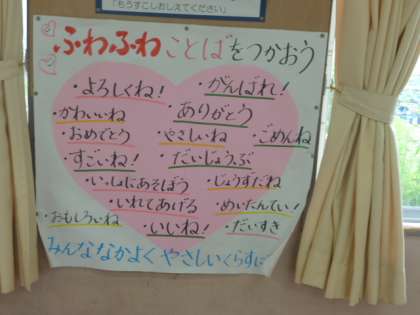 「もうすこしおしえてください」
ふわふわことばをつかおう
・よろしくね！ ・がんばれ！
・かわいいね ・ありがとう
・おめでとう ・やさしいね ・ごめんね
・すごいね！ ・だいじょうぶ
・いっしょにあそぼう ・じょうずだね
・いれてあげる ・めいたんてい！
・おもしろいね ・いいね！ ・だいすき
みんななかよく やさしいくらすに